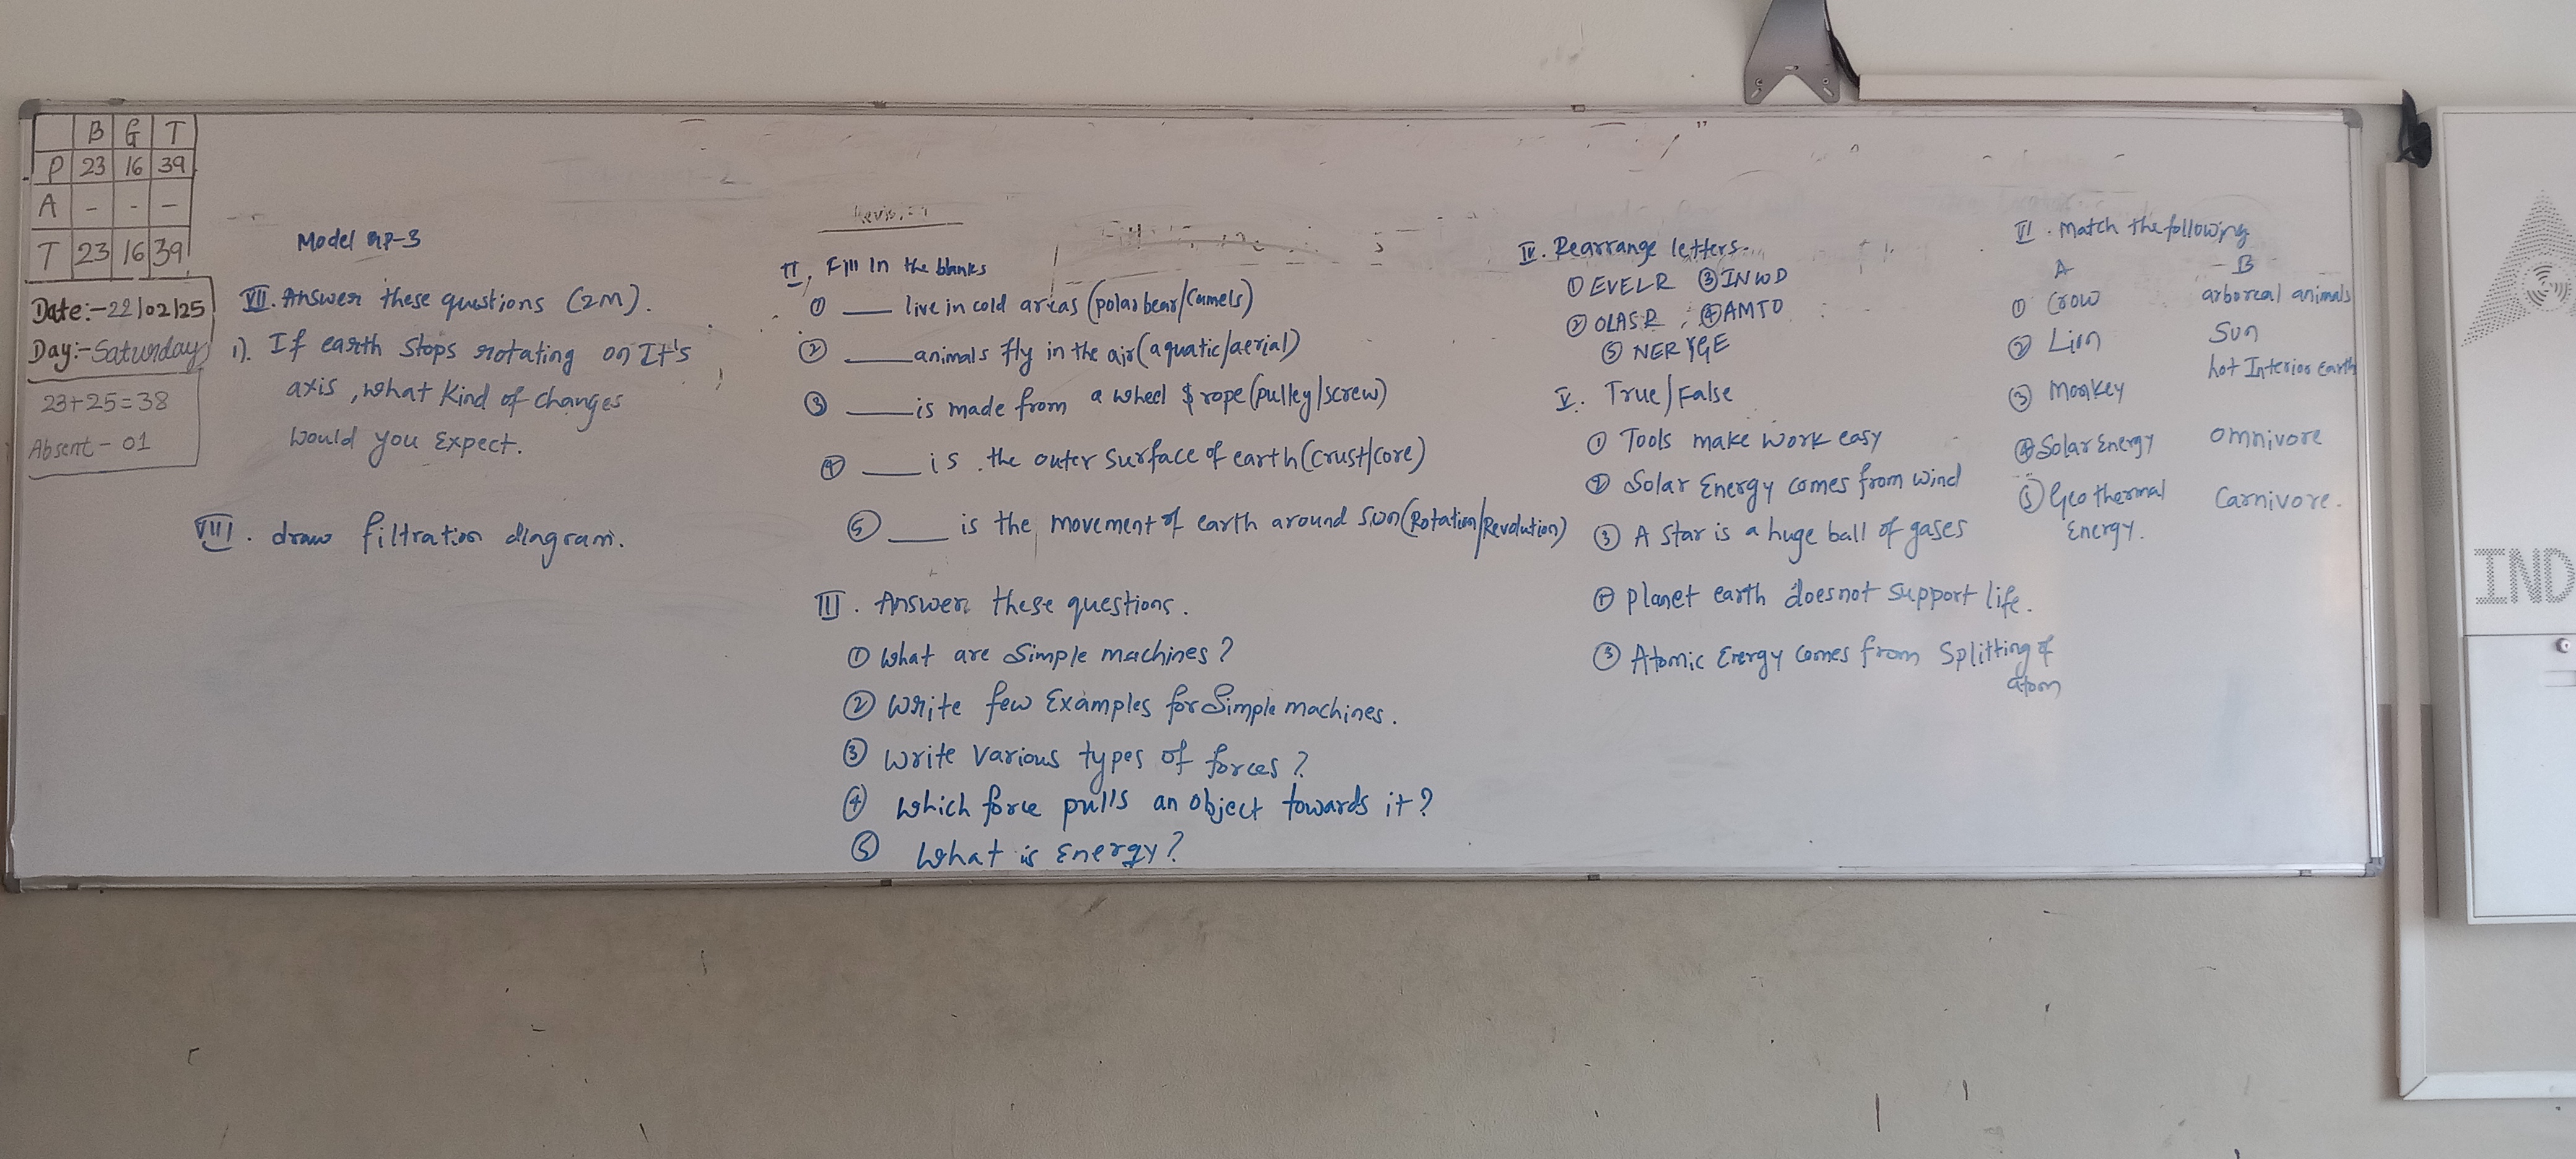 B G T
P 23 16 39
A - - -
T 23 16 39
Date:-22/02/25
Day:-Saturday
23+25=38
Absent - 01
Model QP-3
VII. Answer these questions (2M).
1). If earth stops rotating on It's
axis, what kind of changes
would you Expect.
VIII. draw filtration diagram.
Revision
II, Fill In the blanks
① ___ live in cold areas (polar bear/Camels)
② ___ animals fly in the air (aquatic/aerial)
③ ___ is made from a wheel & rope (pulley/screw)
④ ___ is the outer surface of earth (Crust/core)
⑤ ___ is the movement of earth around Sun (Rotation/Revolution)
III. Answer these questions.
① What are Simple machines?
② Write few Examples for Simple machines.
③ Write Various types of forces?
④ Which force pulls an object towards it?
⑤ What is Energy?
IV. Rearrange letters.
① EVELR ③ INWD
② OLASR ④ AMTO
⑤ NERYGE
V. True/False
① Tools make work easy
② Solar Energy comes from wind
③ A Star is a huge ball of gases
④ planet earth doesnot support life.
⑤ Atomic Energy comes from Splitting of
atom
VI. Match the following
A - B
① Crow arboreal animals
② Lion Sun
③ Monkey hot Interior earth
④ Solar Energy omnivore
⑤ Geothermal Carnivore.
Energy.
IND